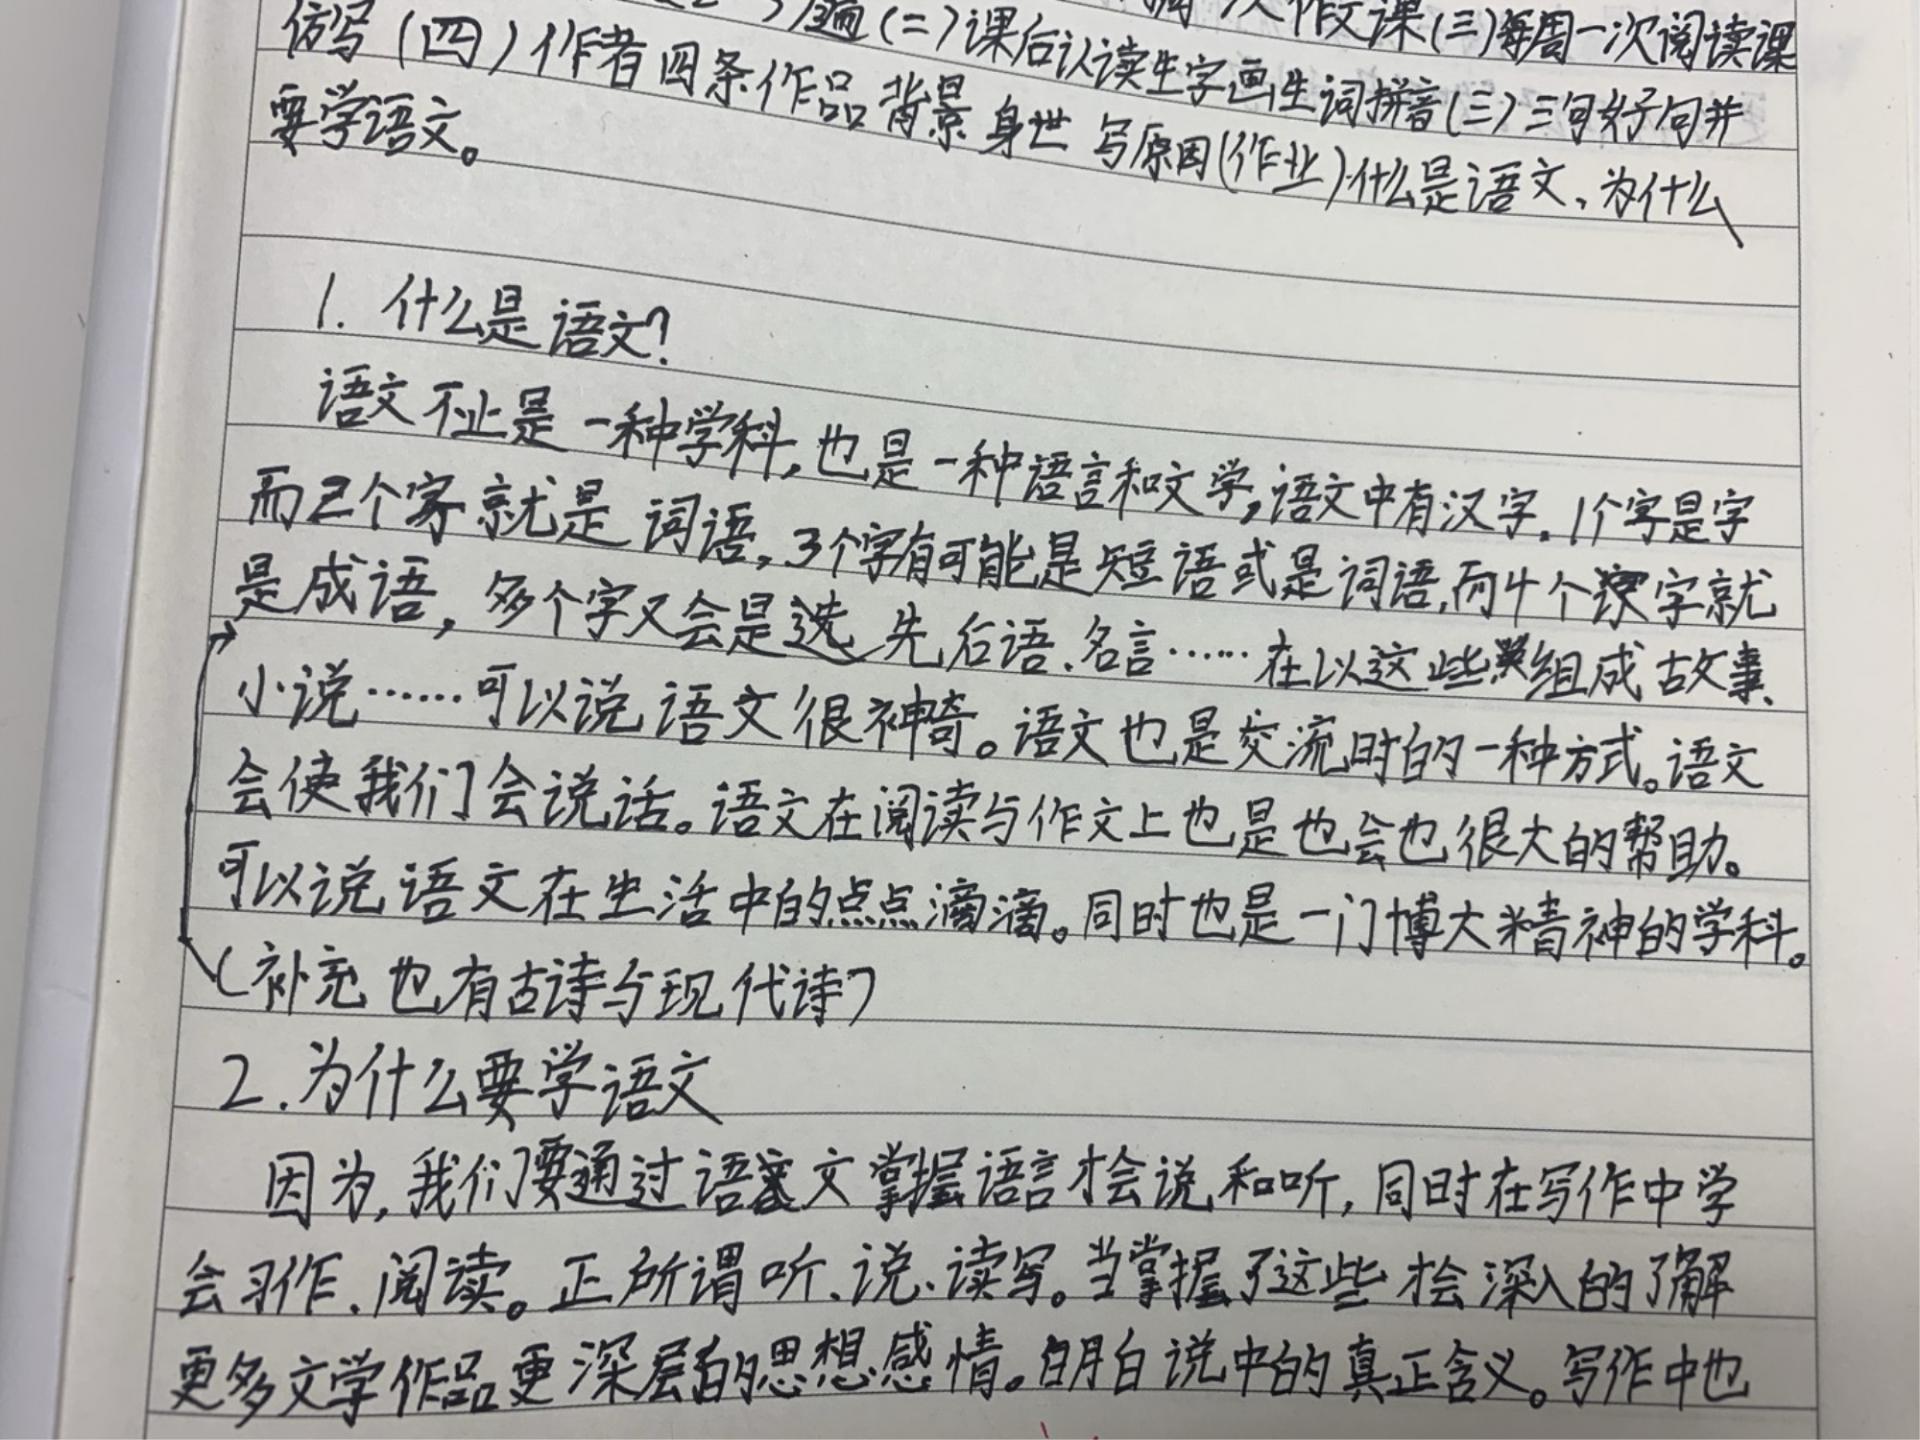 遍(二)课后认读生字画生词拼音(三)三句好句并
次作文课(三)每周一次阅读课
仿写(四)作者四条作品背景身世写原因(作业)什么是语文、为什么
要学语文。
1. 什么是语文?
语文不止是一种学科,也是一种语言和文学,语文中有汉字.1个字是字
而2个字就是词语,3个字有可能是短语或是词语,而4个字就
是成语,多个字又会是 先后语、名言……在以这些组成故事、
小说……可以说语文很神奇。语文也是交流时的一种方式。语文
会使我们会说话。语文在阅读与作文上也是也会也很大的帮助。
可以说语文在生活中的点点滴滴。同时也是一门博大精神的学科。
(补充也有古诗与现代诗)
2.为什么要学语文
因为,我们要通过语文掌握语言才会说和听,同时在写作中学
会习作、阅读。正所谓听、说、读写。当掌握了这些才会深入的了解
更多文学作品更深层的思想感情。明白说中的真正含义。写作中也